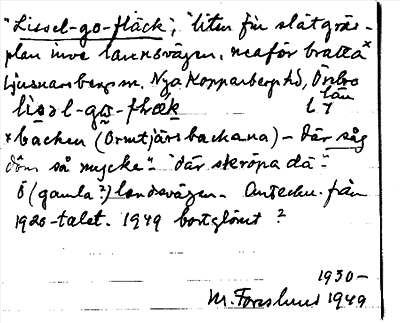 "Lissel-go-fläck", liten fin slät gräs-
plan invo landsvägen, neaför bratta x
Ljusnarsbergsm. Nya Kopparbergs hd, Örebro
län
x backen (Ormtjärsbackana) – där såg
döm så mycke". "där skröpa dä".
Ö (gamla?) landsvägen. Anteckn. från
1920-talet. 1949 bortglömt?
1930–
M. Forslund 1949